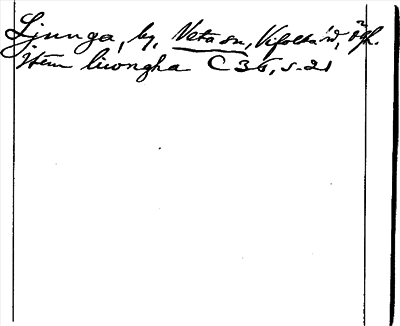 Ljunga, by, Veta sn, Vifolka hd, Ögl.
Item liwongha C 36, s. 21